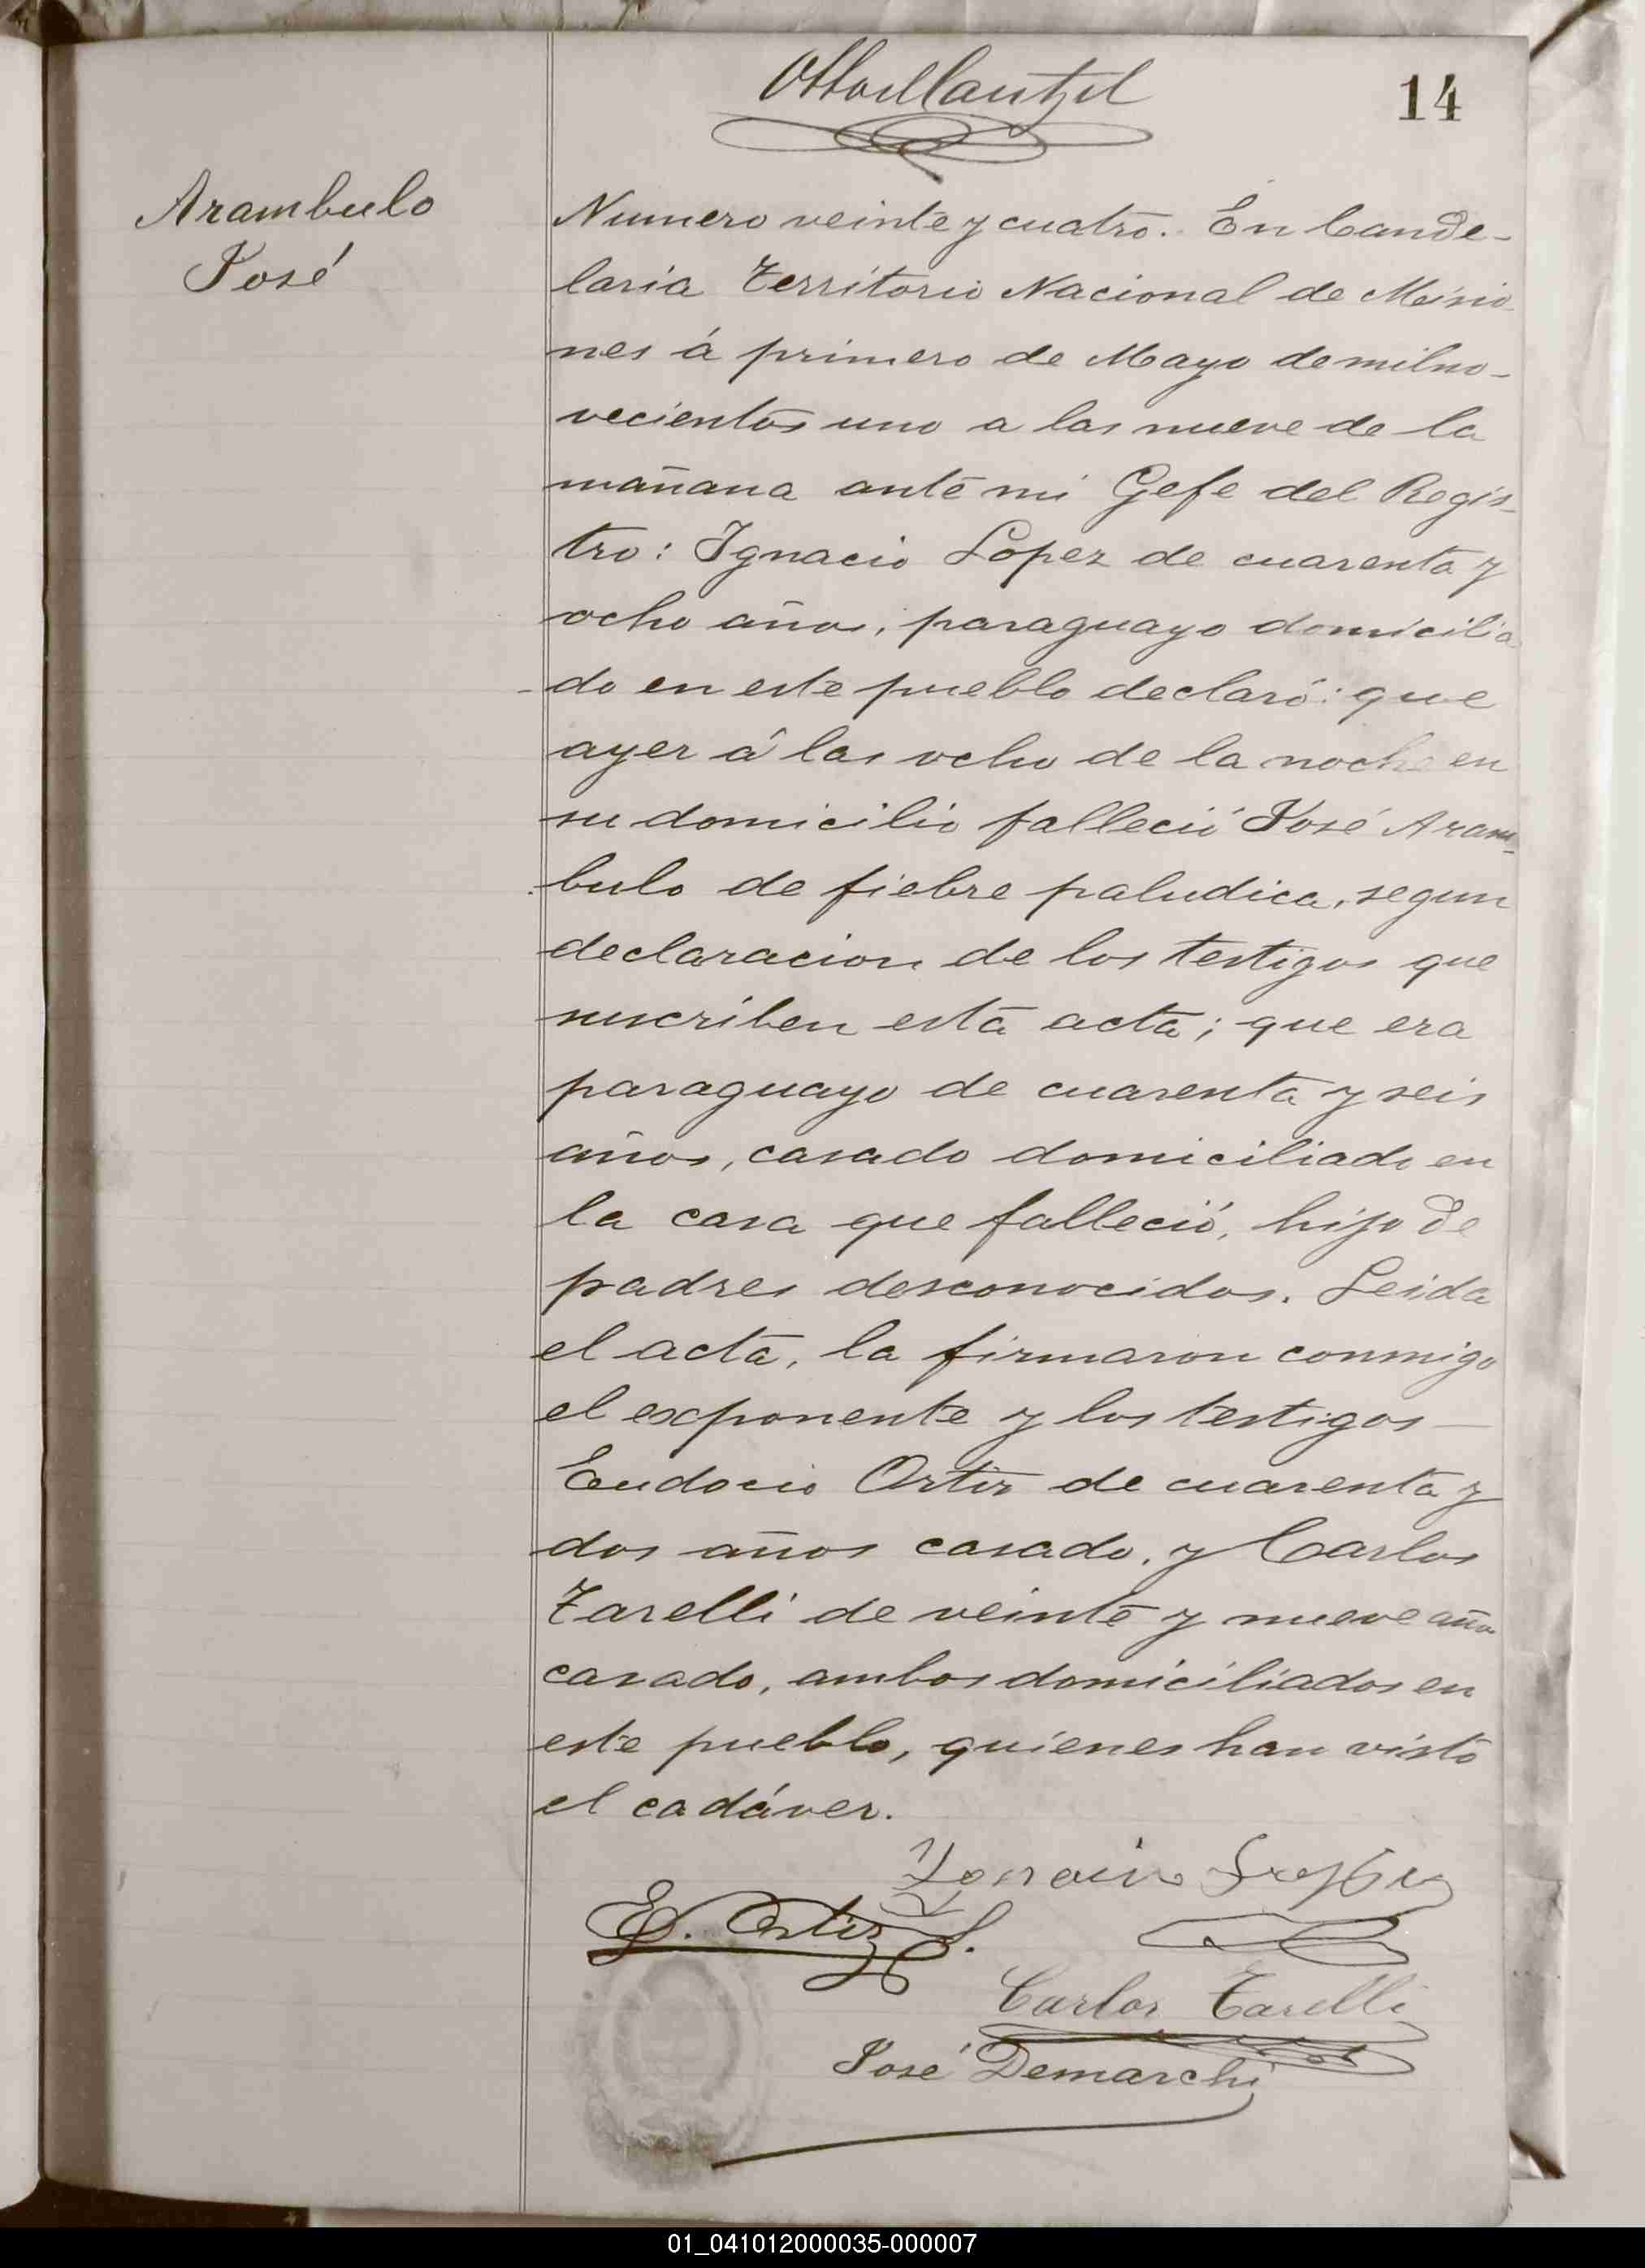 14
Arambulo
José
Numero veinte y cuatro. En Cande-
laria Territorio Nacional de Misio-
nes á primero de Mayo de mil no-
vecientos uno a las nueve de la
mañana ante mi Gefe del Regis-
tro: Ignacio Lopez de cuarenta y
ocho años, paraguayo domicilia
do en este pueblo declaró: que
ayer á las ocho de la noche en
su domicilio falleció José Aram-
bulo de fiebre paludica, segun
declaracion de los testigos que
suscriben esta acta; que era
paraguayo de cuarenta y seis
años, casado domiciliado en
la casa que falleció, hijo de
padres desconocidos. Leida
el acta, la firmaron conmigo
el exponente y los testigos —
Eudocio Ortiz de cuarenta y
dos años casado, y Carlos
Tarelli de veinte y nueve años
casado, ambos domiciliados en
este pueblo, quienes han visto
el cadáver.
E. Ortiz S.
Carlos Tarelli
José Demarchi
01_041012000035-000007